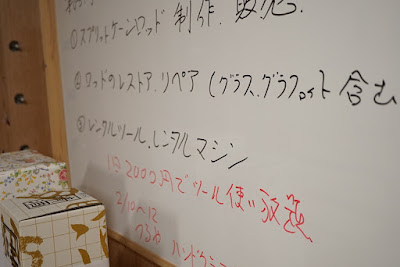 ①スプリットケーンロッド 制作、販売.
②ロッドのレストア、リペア (グラス、グラファイト 含む
③レンタルツール、レンタルマシン
1日2000円でツール使い放題
2/10〜12
つるや ハンドクラフ